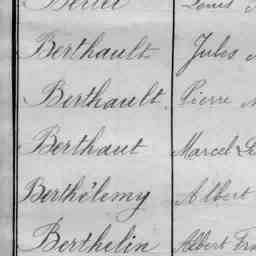 Berthault Jules
Berthault Pierre
Berthaut Marcel
Berthélemy Albert
Berthelin Albert